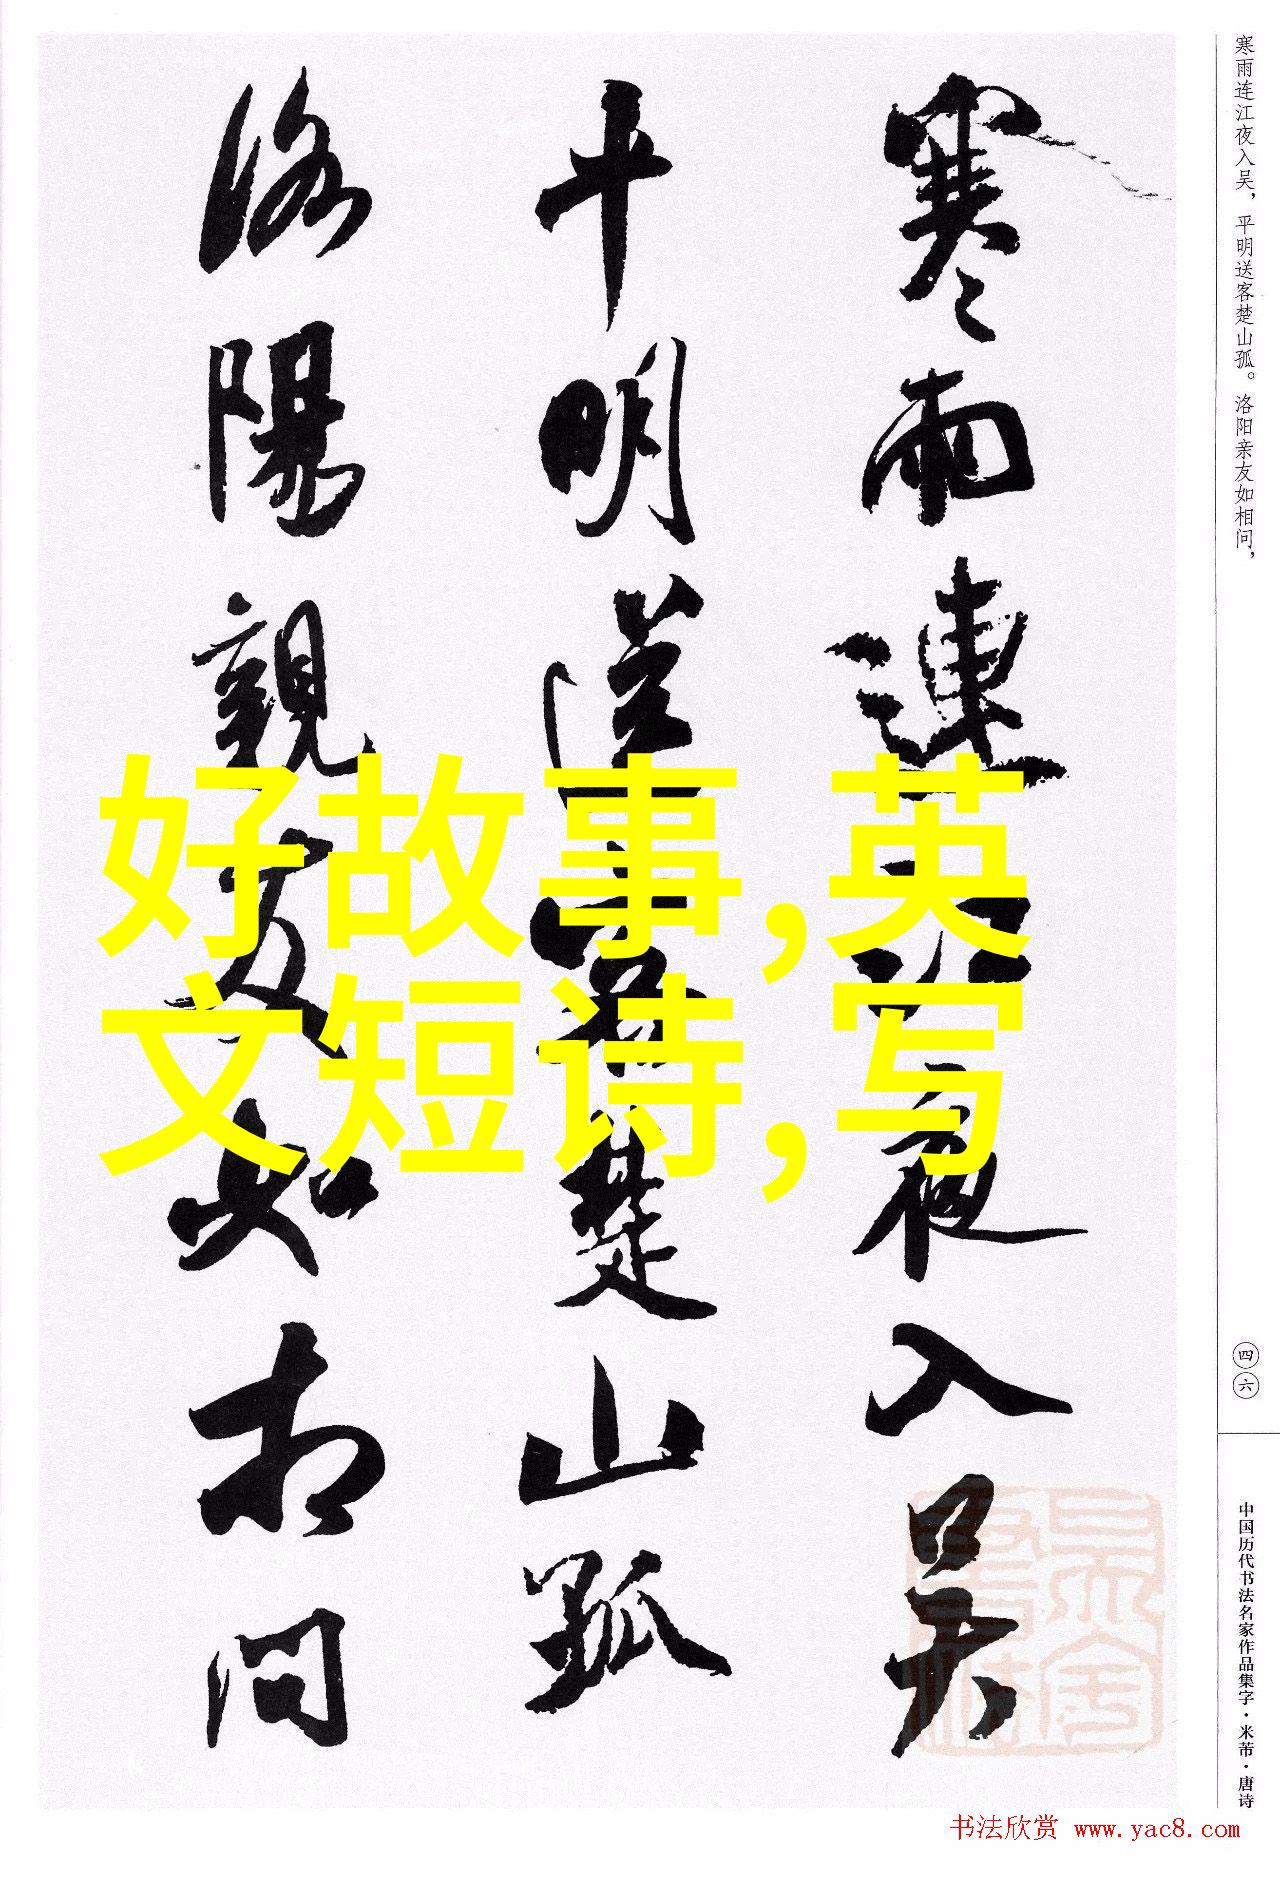 寒雨连江夜入吴，平明送客楚山孤。洛阳亲友如相问，
寒雨連江夜入吳
平明送客楚山孤
洛陽親友如相問
好故事,英
文短诗,写
四六
中国历代书法名家作品集字·米芾·唐诗
书法欣赏 www.yac8.com